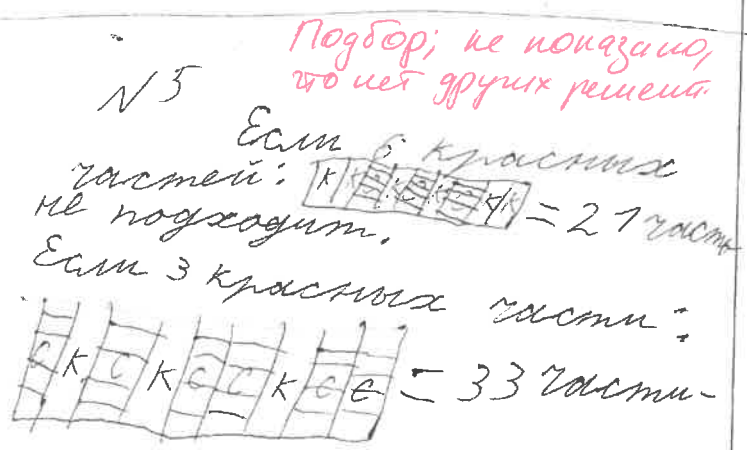 Подбор; не показано,
что нет других решений.
N 5
Если 6 красных
частей: К К К К К К = 21 часть
не подходит.
Если 3 красных части:
С К С К С С К С С = 33 части-